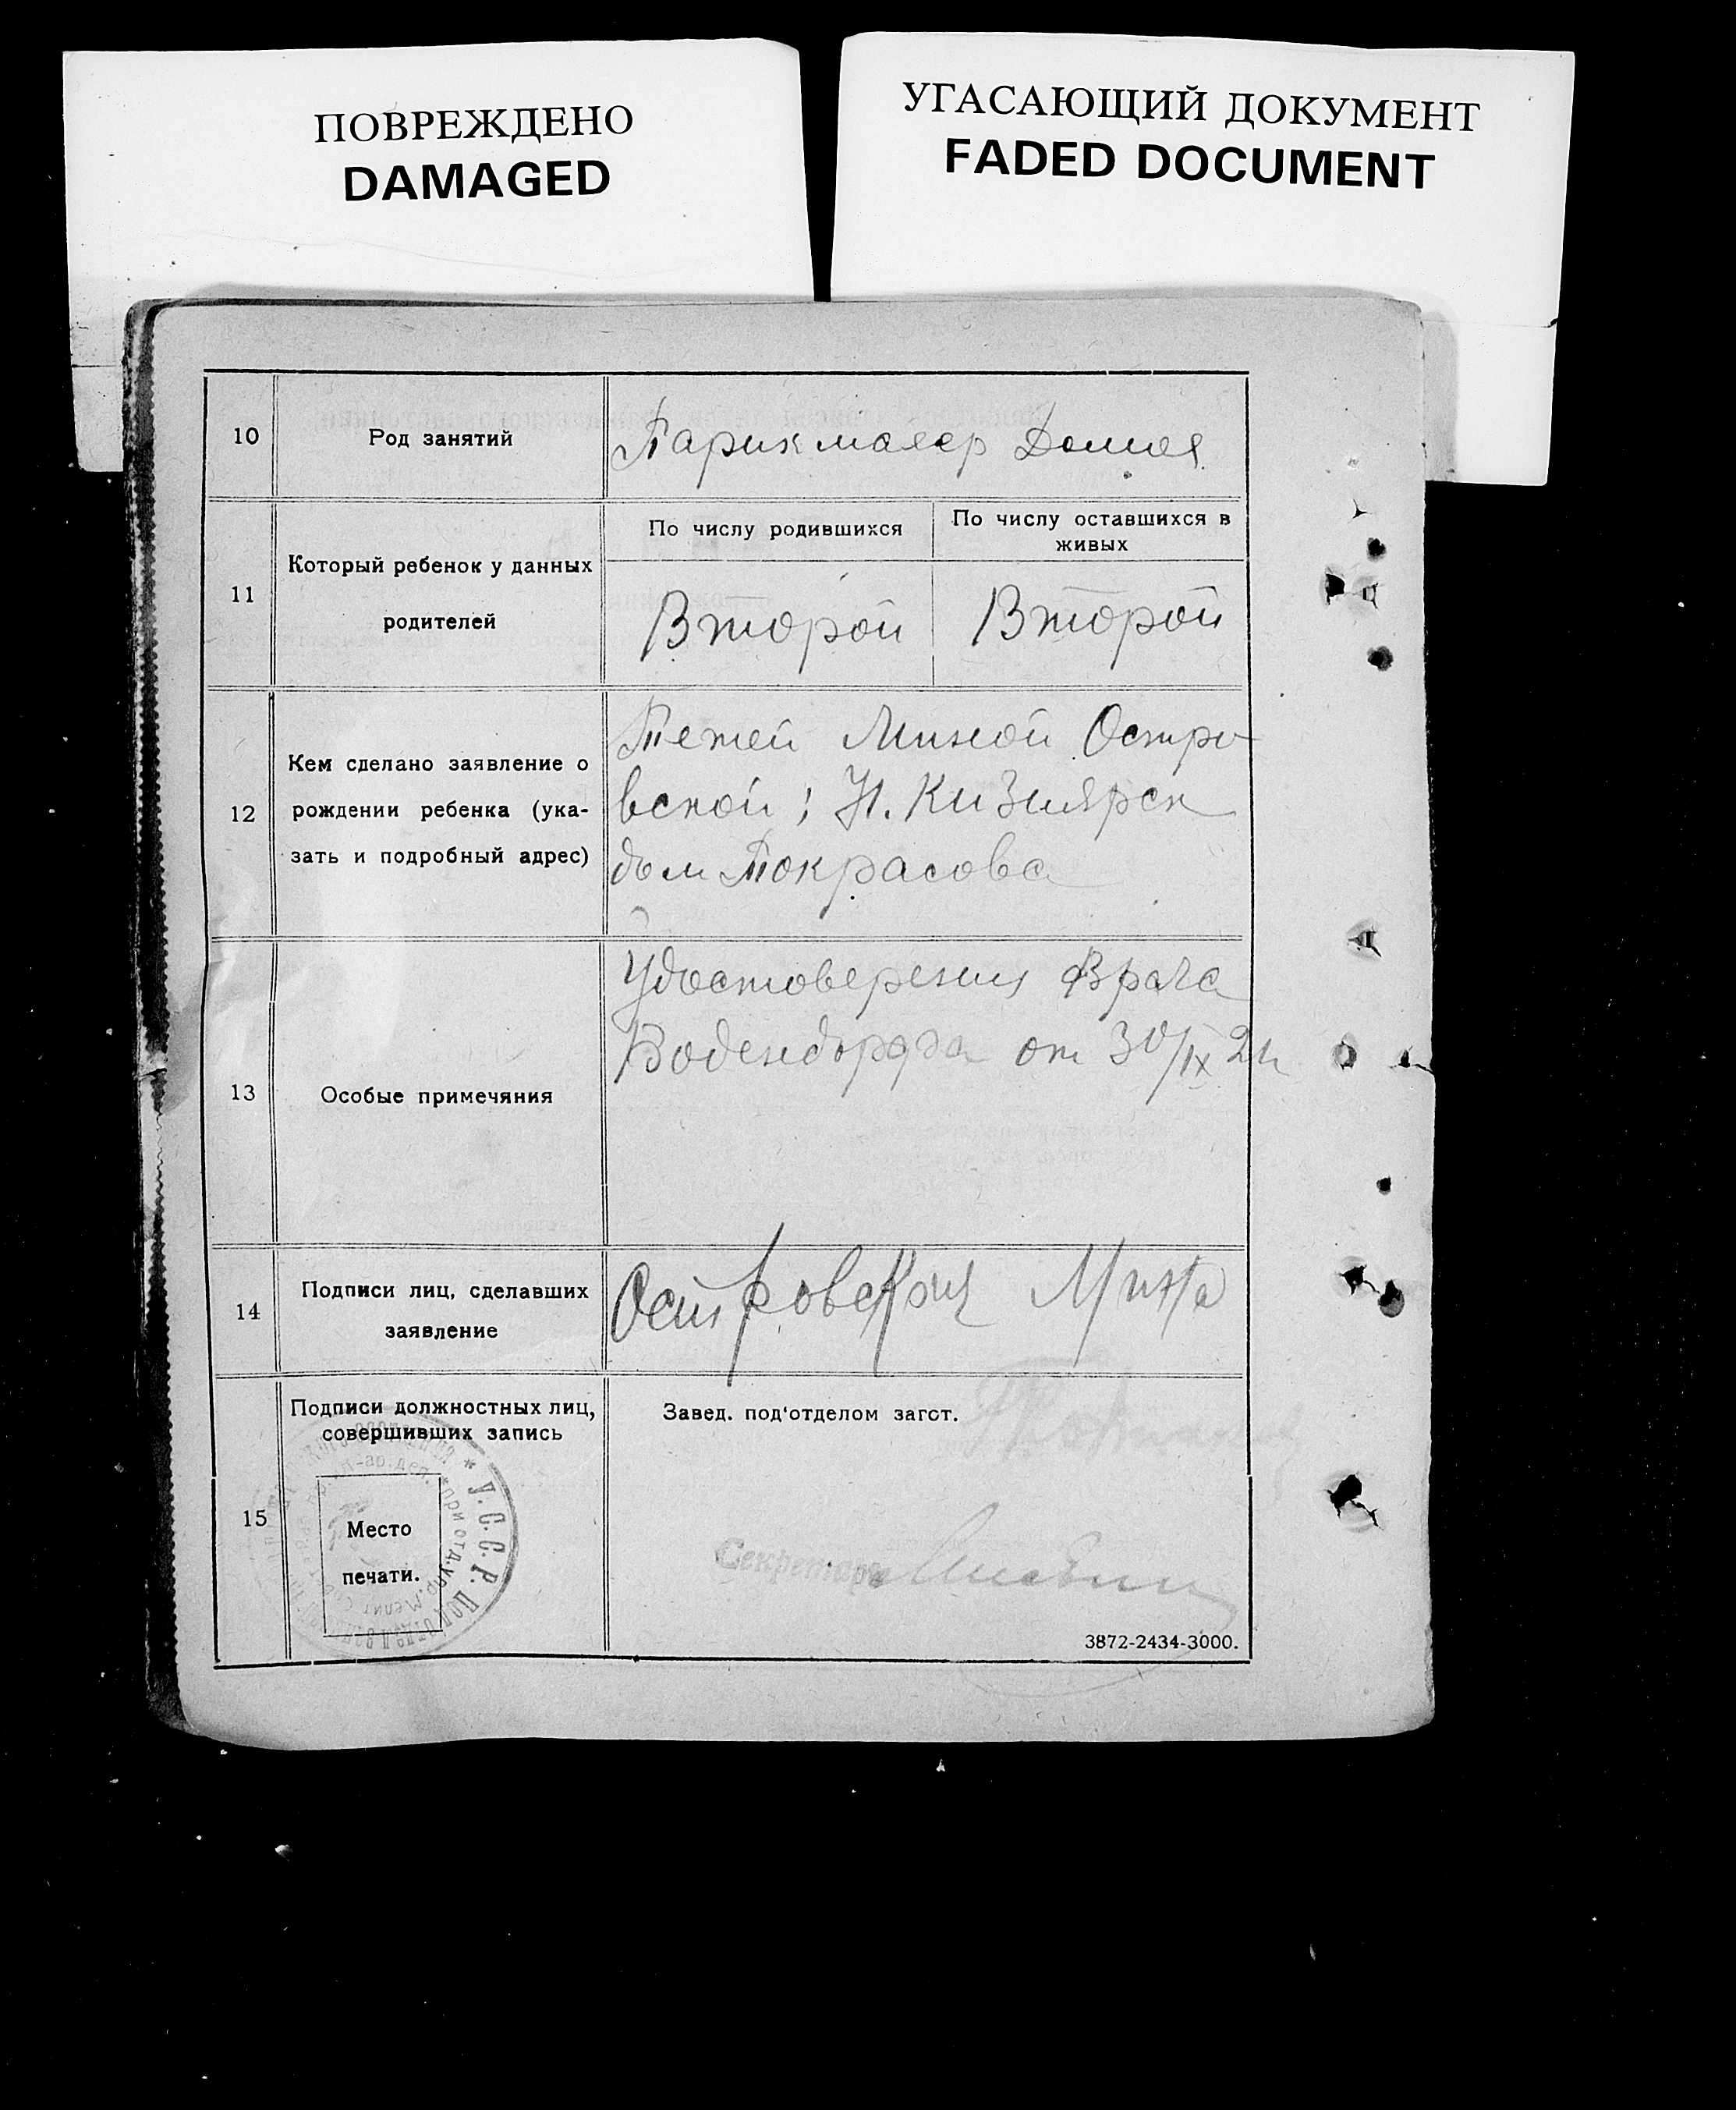 ПОВРЕЖДЕНО
DAMAGED
УГАСАЮЩИЙ ДОКУМЕНТ
FADED DOCUMENT
10
Род занятий
Парикмахер Домоя
11
Который ребенок у данных
родителей
По числу родившихся
По числу оставшихся в
живых
Второй
Второй
12
Кем сделано заявление о
рождении ребенка (ука-
зать и подробный адрес)
Тетей Миной Остро
вской; Н. Кизиярск
дом Покрасова
13
Особые примечяния
Удостоверения Врача
от 30/IX 21г
14
Подписи лиц, сделавших
заявление
Островская Мина
15
Подписи должностных лиц,
совершивших запись
Место
печати.
У.С.С.Р. Подотдел
при отд. упр. Мелит
Завед. под'отделом загст.
Секретарь
3872-2434-3000.